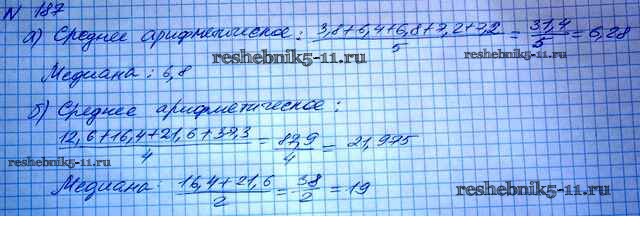 N 187
а) Среднее арифметическое: (3,8+6,4+6,8+7,2+7,2)/5 = 31,4/5 = 6,28
reshebnik5-11.ru
reshebnik5-11.ru
Медиана: 6,8
б) Среднее арифметическое:
(12,6+16,4+21,6+37,3)/4 = 87,9/4 = 21,975
reshebnik5-11.ru
Медиана: (16,4+21,6)/2 = 38/2 = 19
reshebnik5-11.ru